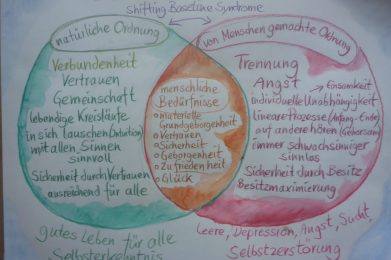 Shifting Baseline Syndrome
natürliche Ordnung
von Menschen gemachte Ordnung
Verbundenheit
Vertrauen
Gemeinschaft
lebendige Kreisläufe
in sich lauschen (Intuition)
mit allen Sinnen
sinnvoll
Sicherheit durch Vertrauen
ausreichend für alle
menschliche
Bedürfnisse
materielle
Grundgeborgenheit
Vertrauen
Sicherheit
Geborgenheit
Zufriedenheit
Glück
Trennung
Angst → Einsamkeit
individuelle Unabhängigkeit
lineare Prozesse (Anfang-Ende)
auf andere hören (Gehorsam)
immer schwachsinniger
sinnlos
Sicherheit durch Besitz
Besitzmaximierung
gutes Leben für alle
Selbsterkenntnis
Leere, Depression, Angst, Sucht,
Selbstzerstörung